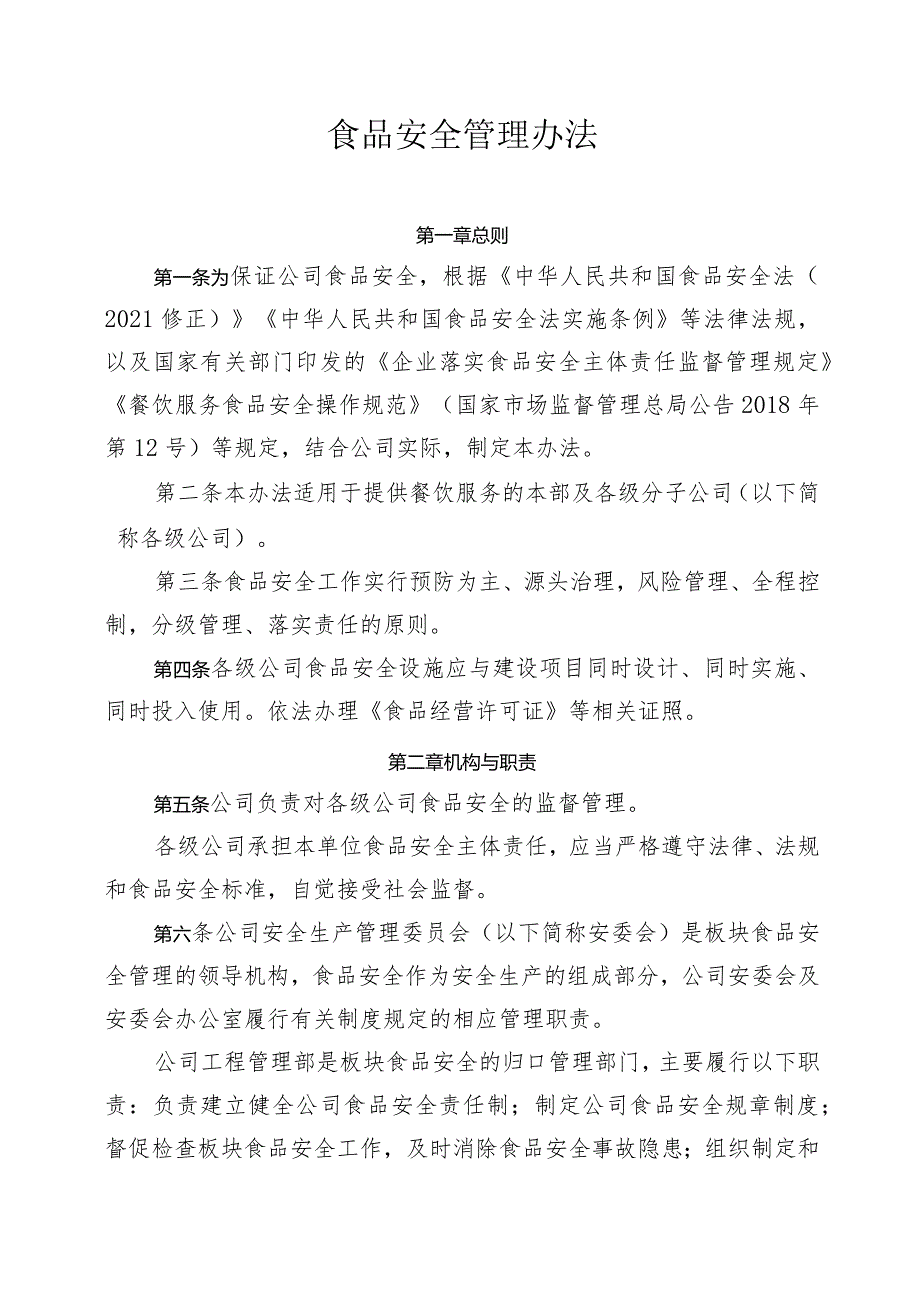 食品安全管理办法
第一章总则
第一条为保证公司食品安全，根据《中华人民共和国食品安全法（
2021 修正）》《中华人民共和国食品安全法实施条例》等法律法规，
以及国家有关部门印发的《企业落实食品安全主体责任监督管理规定》
《餐饮服务食品安全操作规范》（国家市场监督管理总局公告 2018 年
第 12 号）等规定，结合公司实际，制定本办法。
第二条本办法适用于提供餐饮服务的本部及各级分子公司（以下简
称各级公司）。
第三条食品安全工作实行预防为主、源头治理，风险管理、全程控
制，分级管理、落实责任的原则。
第四条各级公司食品安全设施应与建设项目同时设计、同时实施、
同时投入使用。依法办理《食品经营许可证》等相关证照。
第二章机构与职责
第五条公司负责对各级公司食品安全的监督管理。
各级公司承担本单位食品安全主体责任，应当严格遵守法律、法规
和食品安全标准，自觉接受社会监督。
第六条公司安全生产管理委员会（以下简称安委会）是板块食品安
全管理的领导机构，食品安全作为安全生产的组成部分，公司安委会及
安委会办公室履行有关制度规定的相应管理职责。
公司工程管理部是板块食品安全的归口管理部门，主要履行以下职
责：负责建立健全公司食品安全责任制；制定公司食品安全规章制度；
督促检查板块食品安全工作，及时消除食品安全事故隐患；组织制定和